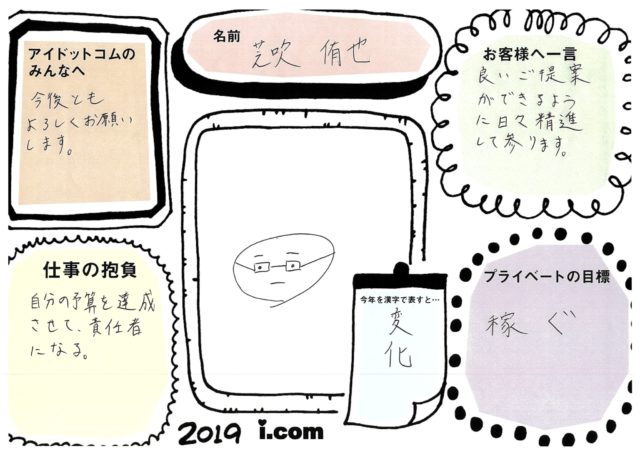 名前
芝吹 侑也
アイドットコムの
みんなへ
今後とも
よろしくお願い
します。
お客様へ一言
良いご提案
ができるよう
に日々精進
して参ります。
仕事の抱負
自分の予算を達成
させて、責任者
になる。
今年を漢字で表すと…
変
化
プライベートの目標
稼ぐ
2019 i.com